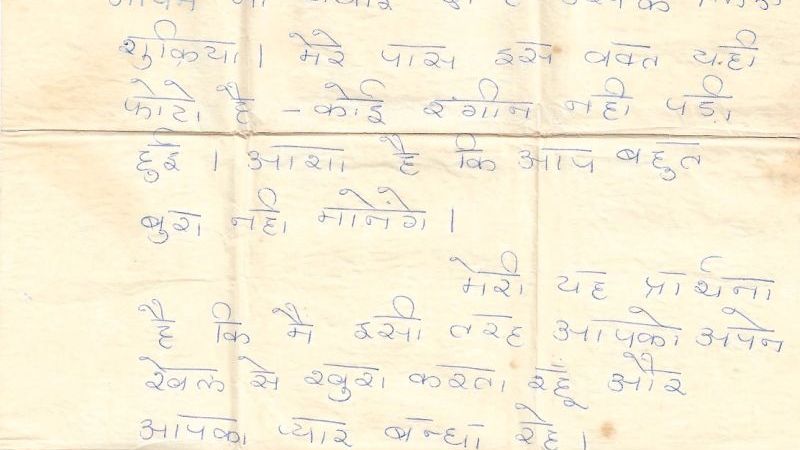 शुक्रिया। मेरे पास इस वक्त यही
फोटो है – कोई रंगीन नही पड़ी
हुई। आशा है कि आप बहुत
बुरा नही मानेंगे।
मेरी यह प्रार्थना
है कि मै इसी तरह आपको अपने
खेल से खुश करता रहूं और
आपका प्यार बन्धा रहे।